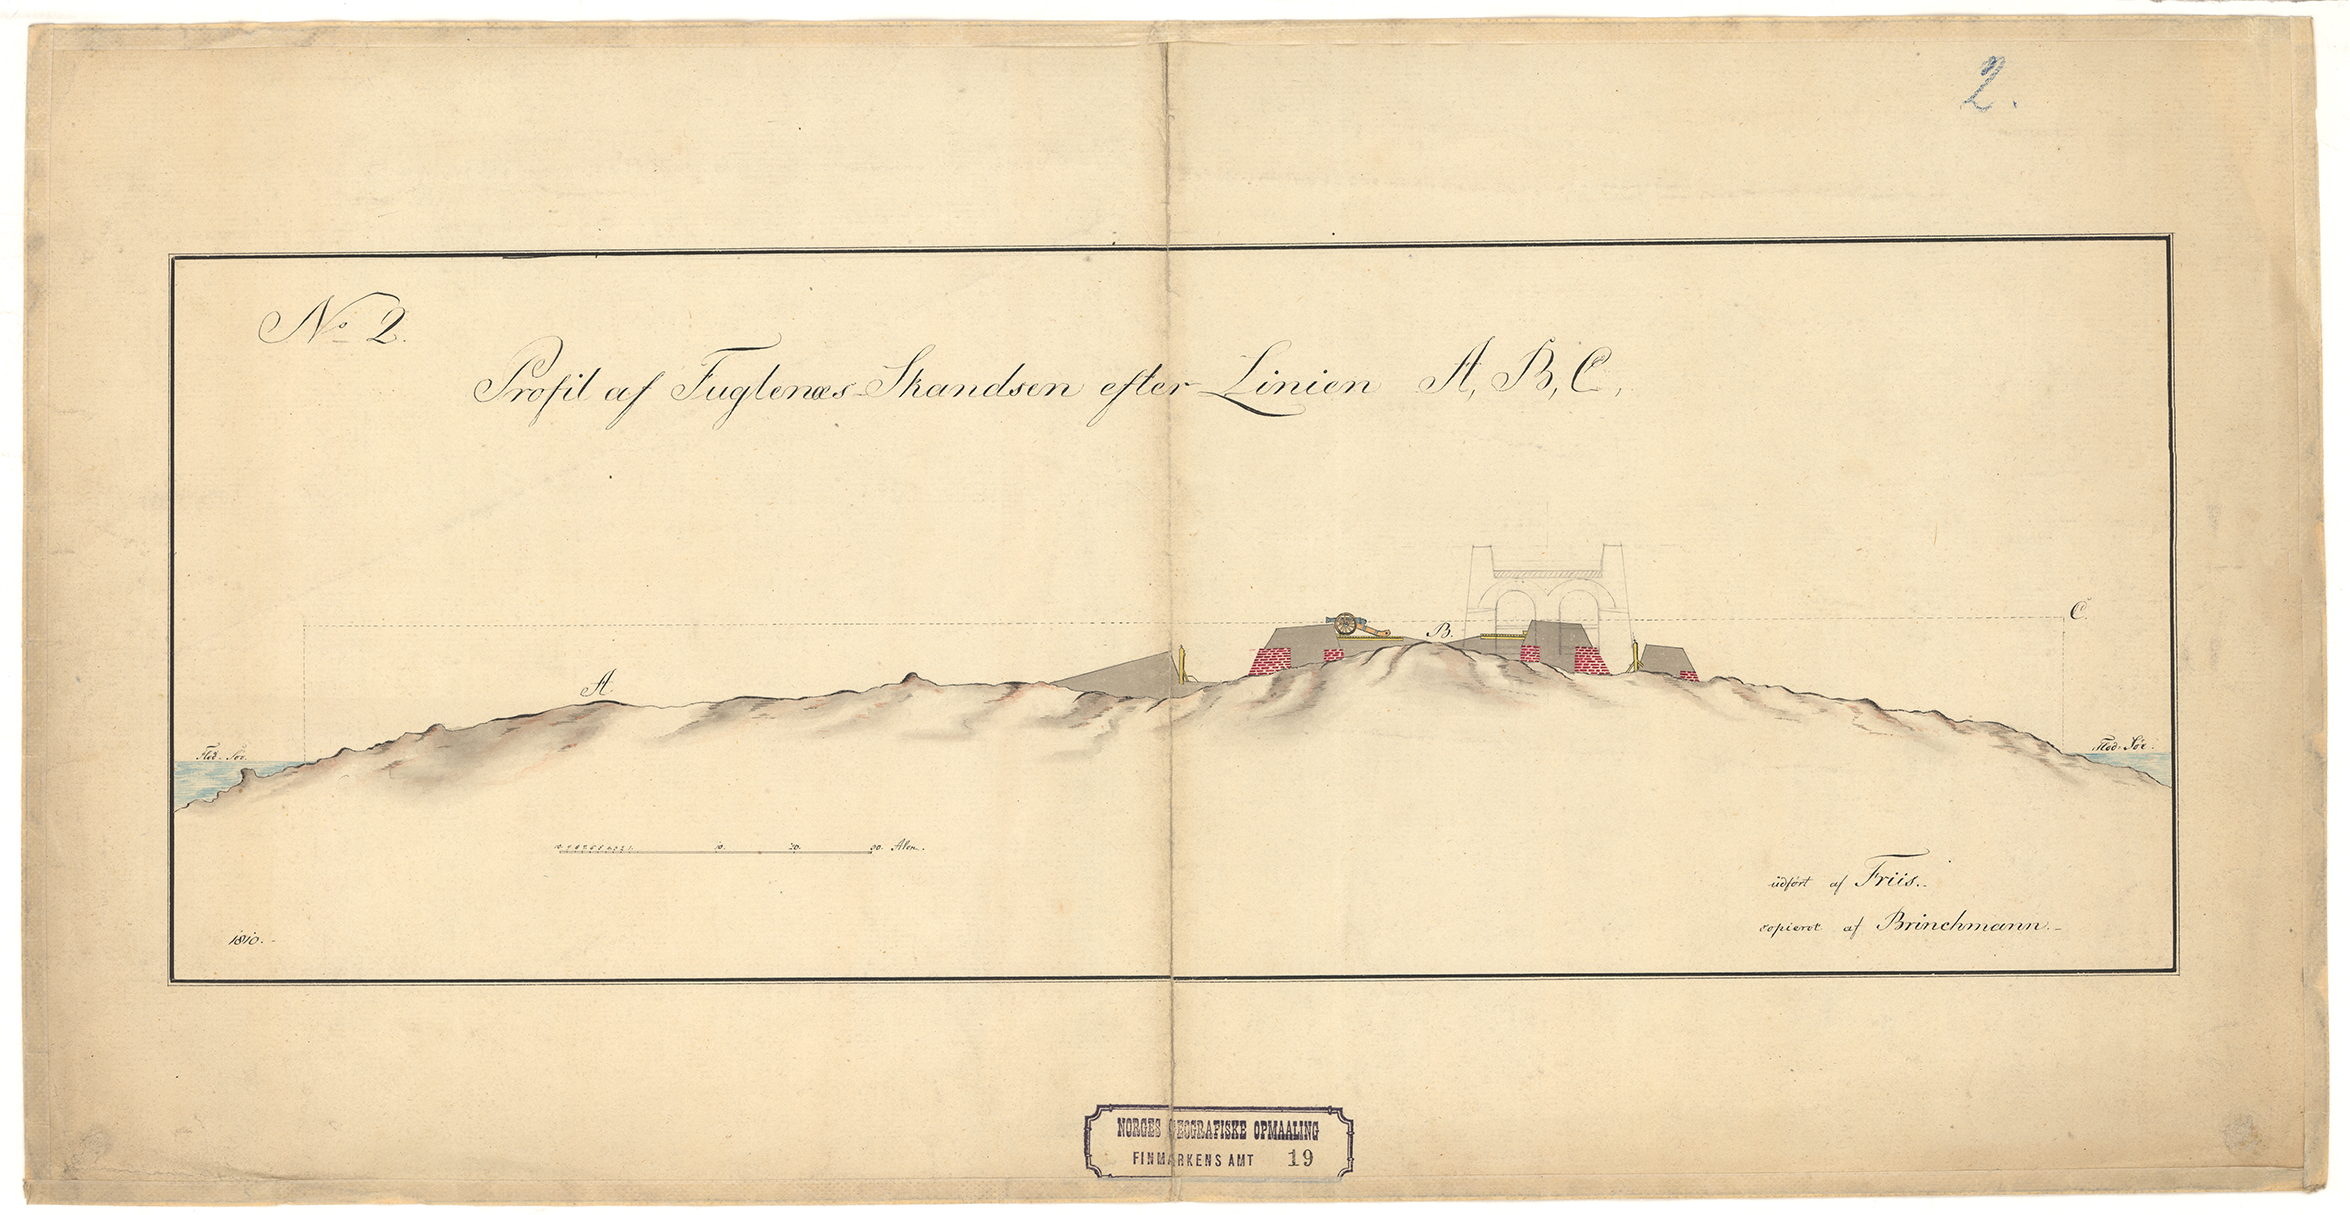 2.
No 2.
Profil af Fuglenæs-Skandsen efter Linien A, B, C,
C.
B.
A
Flod-Söe.
Flod-Söe.
10. 20. 30. Alen.
udfört af Friis.
copieret af Brinchmann.
1810.
NORGES GEOGRAFISKE OPMAALING
FINMARKENS AMT 19